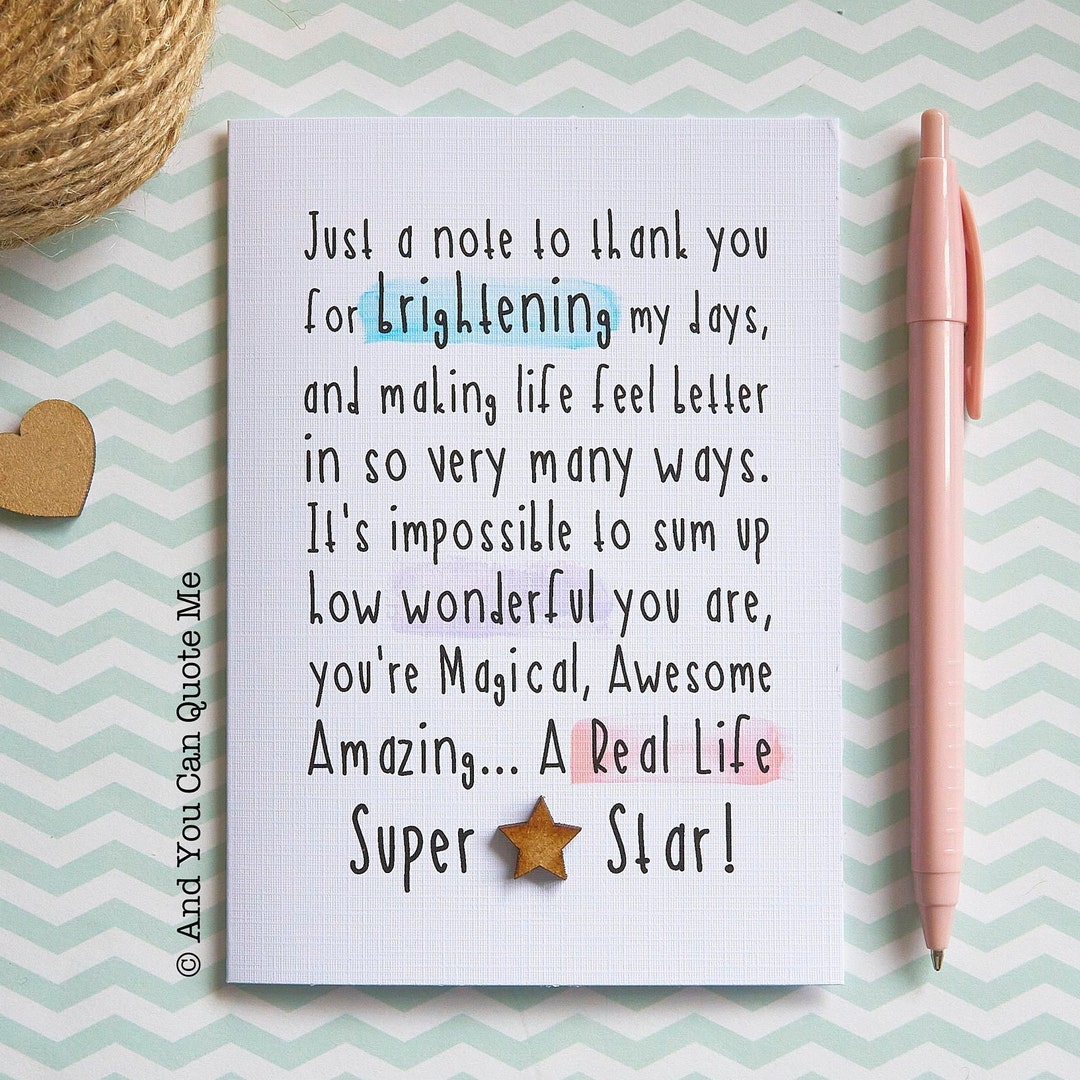 Just a note to thank you
for brightening my days,
and making life feel better
in so very many ways.
It's impossible to sum up
how wonderful you are,
you're Magical, Awesome
Amazing... A Real Life
Super Star!
© And You Can Quote Me